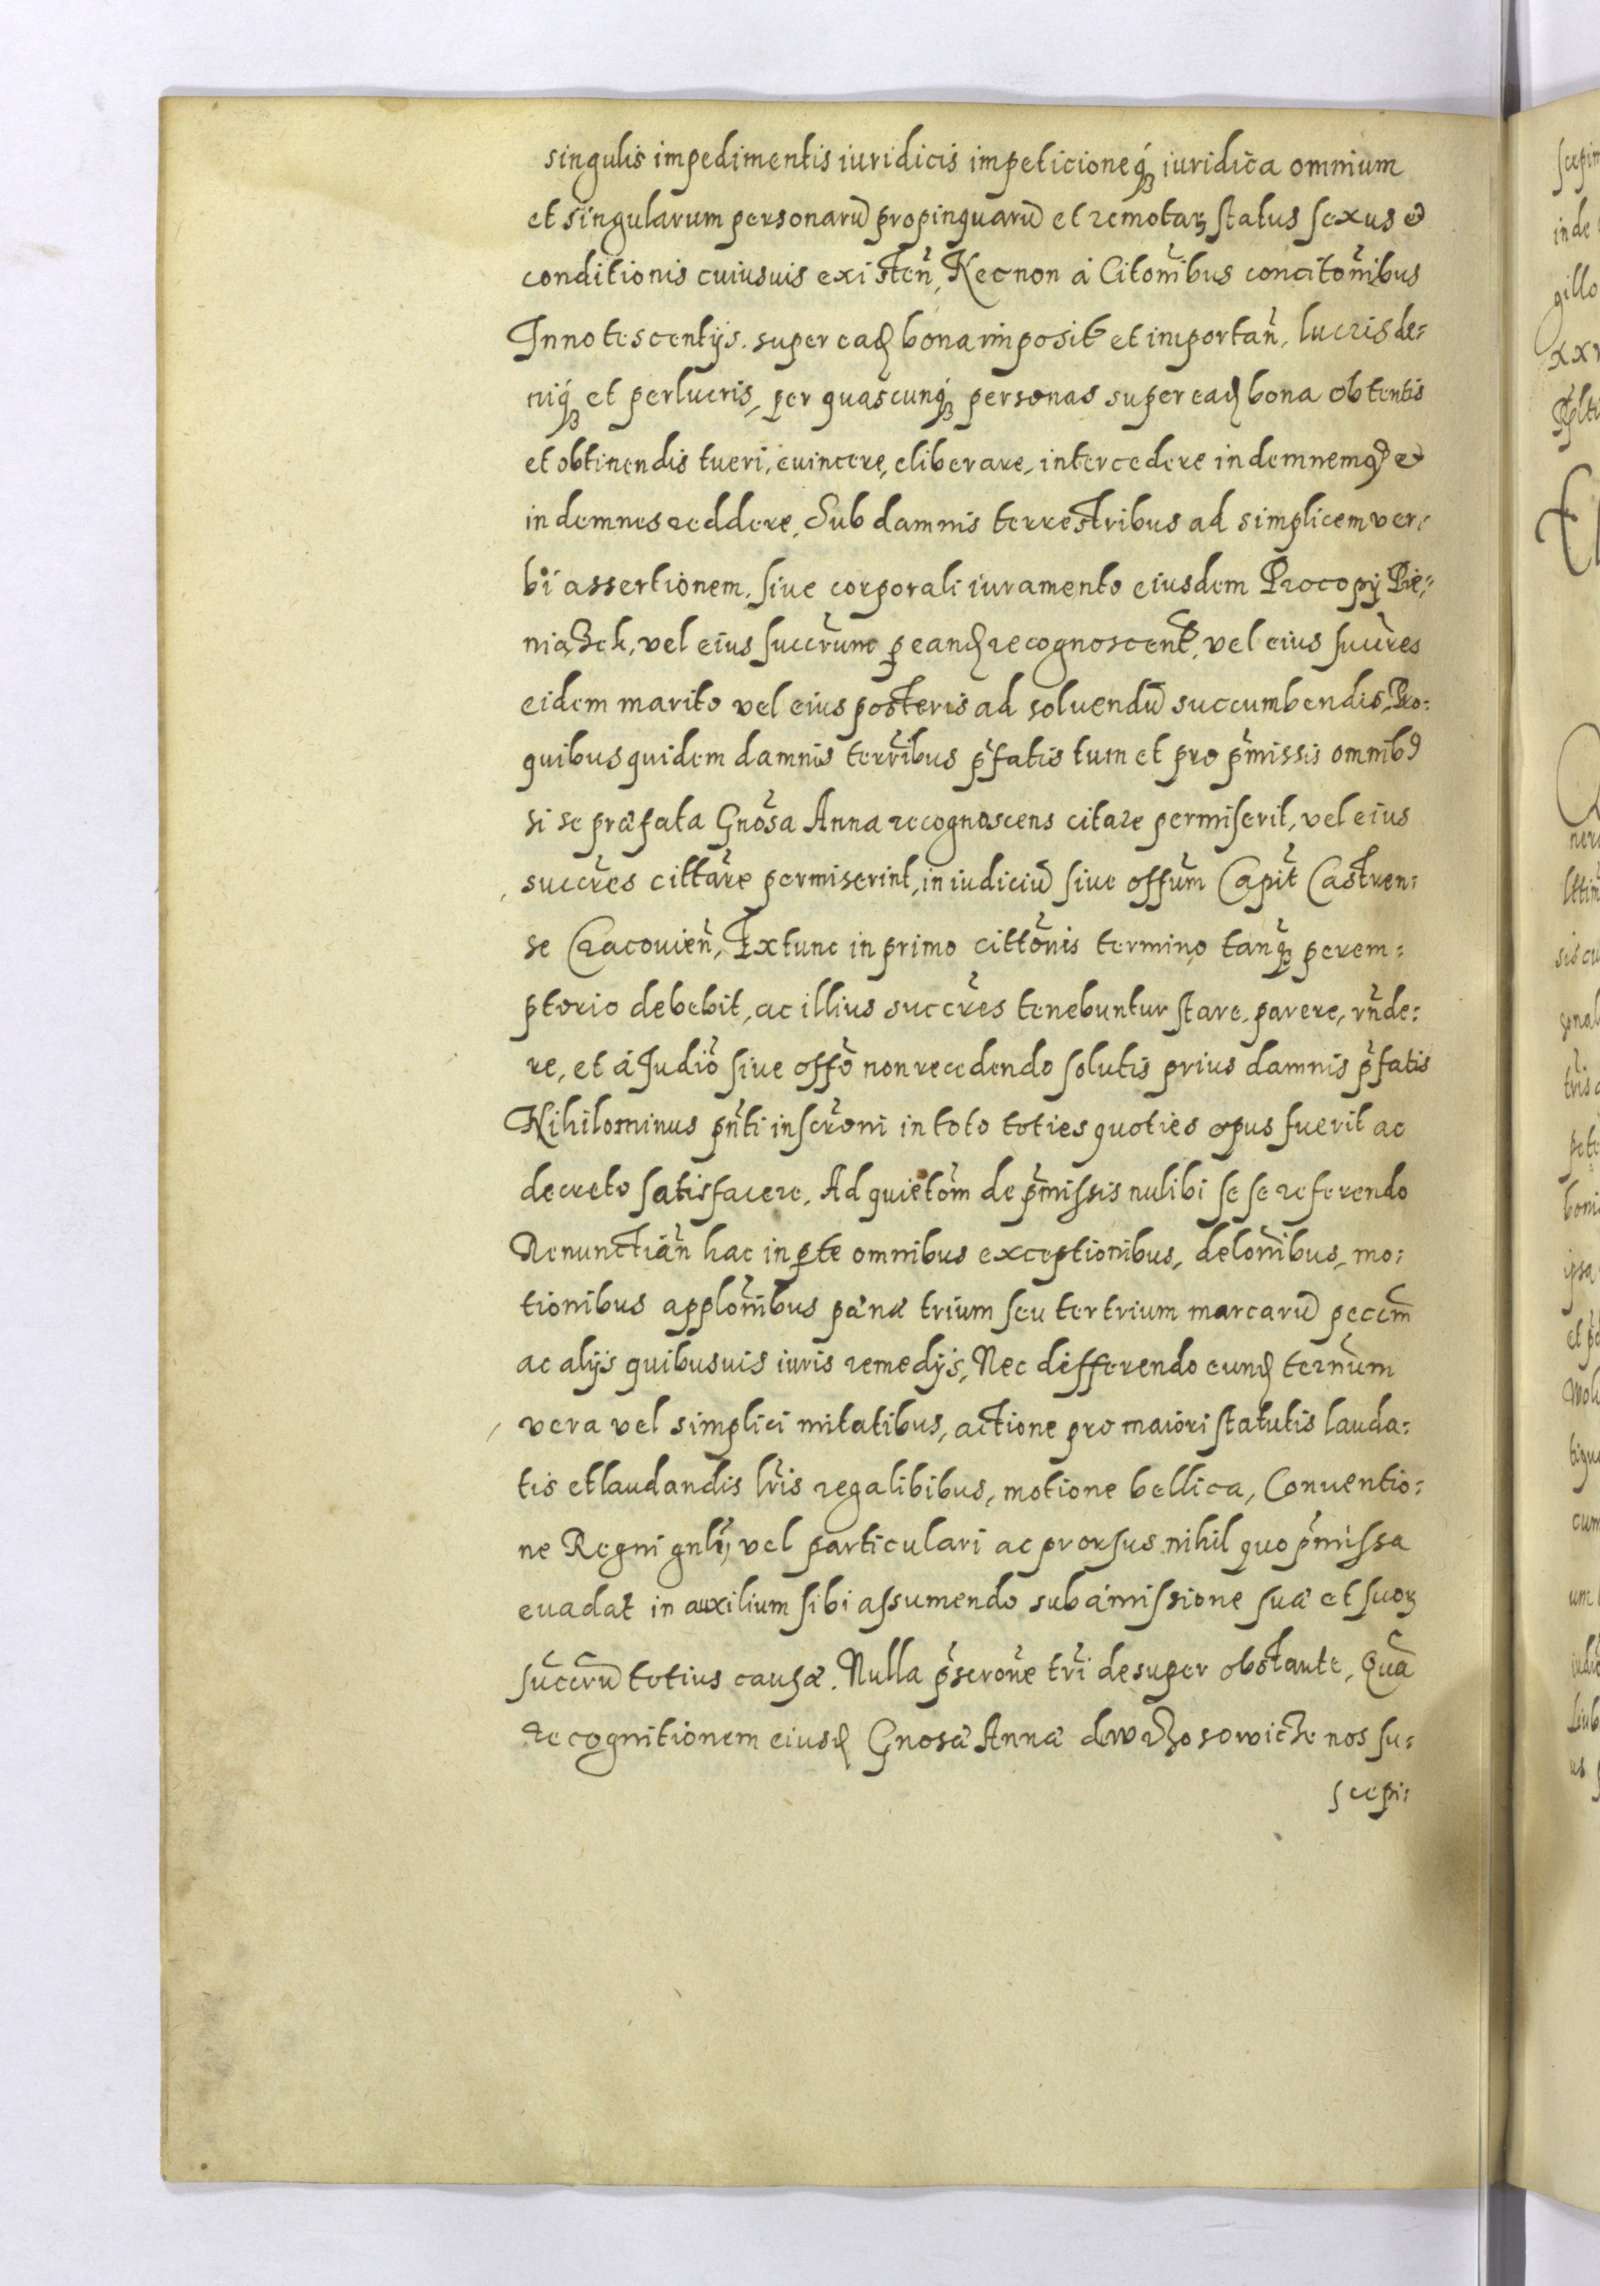 singulis impedimentis iuridicis impeticioneq́ʒ iuridica omnium
et singularum personarū propinquarū et remotaꝝ status sexus et
conditionis cuiusuis existen̄, Necnon á Citōnibus concitōnibus
Innotescentijs. super eaḍ bona imposit̄ et importan̄, lucris de:
niq́ʒ et perlucris, ꝑer quascunq́ʒ personas super eaḍ bona obtentis
et obtinendis tueri, euincere, eliberare, intercedere indemnemqꝫ et
indemnes reddere, Sub damnis terrestribus ad simplicem ver:
bi assertionem, siue corporali iuramento eiusdem Procopij Pie:
niążek, vel eius succr̄um ꝑ eanḍ recognoscent̄, vel eius succr̄es
eidem marito vel eius posteris ad soluendū succumbendis, Pro:
quibus quidem damnis terrībus p̄fatis tum et pro p̄missis omnibꝰ
si se præfata Gnōsa Anna recognoscens citare permiserit, vel eius
succr̄es cittāre permiserint, in iudiciū siue offūm Capit̄ Castren:
se Cracouien̄, Extunc in primo cittōnis termino tanq́ʒ perem:
ptorio debebit, ac illius succr̄es tenebuntur stare, parere, rn̄de:
re, et á Judiō siue offō non recedendo solutis prius damnis p̄fatis
Nihilominus pn̄ti inscrōni in toto toties quoties opus fuerit ac
decreto satisfacere. Ad quietōm de p̄missis nulibi se se referendo
Renunctiān hac in ꝑte omnibus exceptionibus, delōnibus, mo:
tionibus applōnibus pænæ trium seu ter trium marcarū pecc̄m
ac alijs quibusuis iuris remedijs, Nec differendo eunḍ tern̄um
vera vel simplici mitatibus, actione pro maiori statutis lauda:
tis et laudandis lr̄is regalibibus, motione bellica, Conuentio:
ne Regni gnl̄i, vel particulari ac prorsus nihil quo p̄missa
euadat in auxilium sibi assumendo sub amissione suæ et suoꝝ
succr̄ū totius causæ. Nulla p̄scrōne trī desuper obstante, Quā
recognitionem eiusḍ Gnosæ Annæ dwrzosowicze nos su:
scepi: